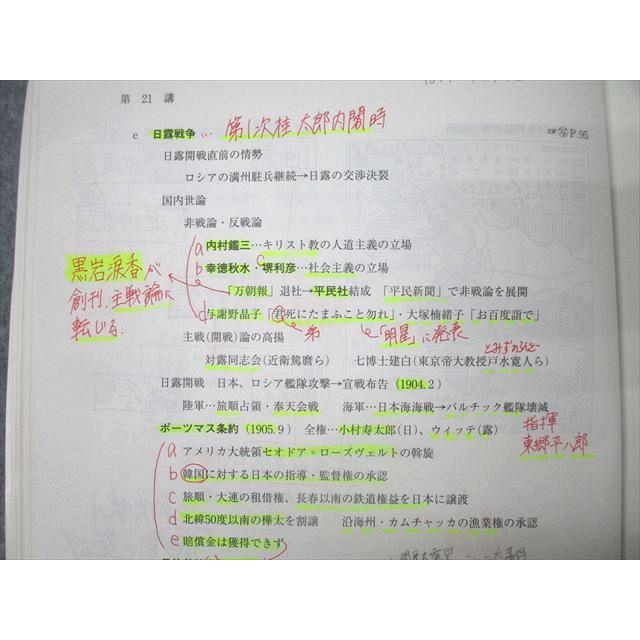 第 21 講
e 日露戦争… 第1次桂太郎内閣時 P.95
日露開戦直前の情勢
ロシアの満州駐兵継続→日露の交渉決裂
国内世論
非戦論・反戦論
a 内村鑑三…キリスト教の人道主義の立場
b 幸徳秋水・c 堺利彦…社会主義の立場
「万朝報」退社→平民社結成 「平民新聞」で非戦論を展開
黒岩涙香が
創刊、主戦論に
転じる。
d 与謝野晶子「君死にたまふこと勿れ」・大塚楠緒子「お百度詣で」
弟 「明星」に発表
主戦(開戦)論の高揚
とみずひろと
対露同志会(近衛篤麿ら) 七博士建白(東京帝大教授戸水寛人ら)
日露開戦 日本、ロシア艦隊攻撃→宣戦布告(1904.2)
陸軍…旅順占領・奉天会戦 海軍…日本海海戦→バルチック艦隊壊滅
指揮
東郷平八郎
ポーツマス条約(1905.9) 全権…小村寿太郎(日)、ウィッテ(露)
a アメリカ大統領セオドア=ローズヴェルトの斡旋
b 韓国に対する日本の指導・監督権の承認
c 旅順・大連の租借権、長春以南の鉄道権益を日本に譲渡
d 北緯50度以南の樺太を割譲 沿海州・カムチャッカの漁業権の承認
e 賠償金は獲得できず